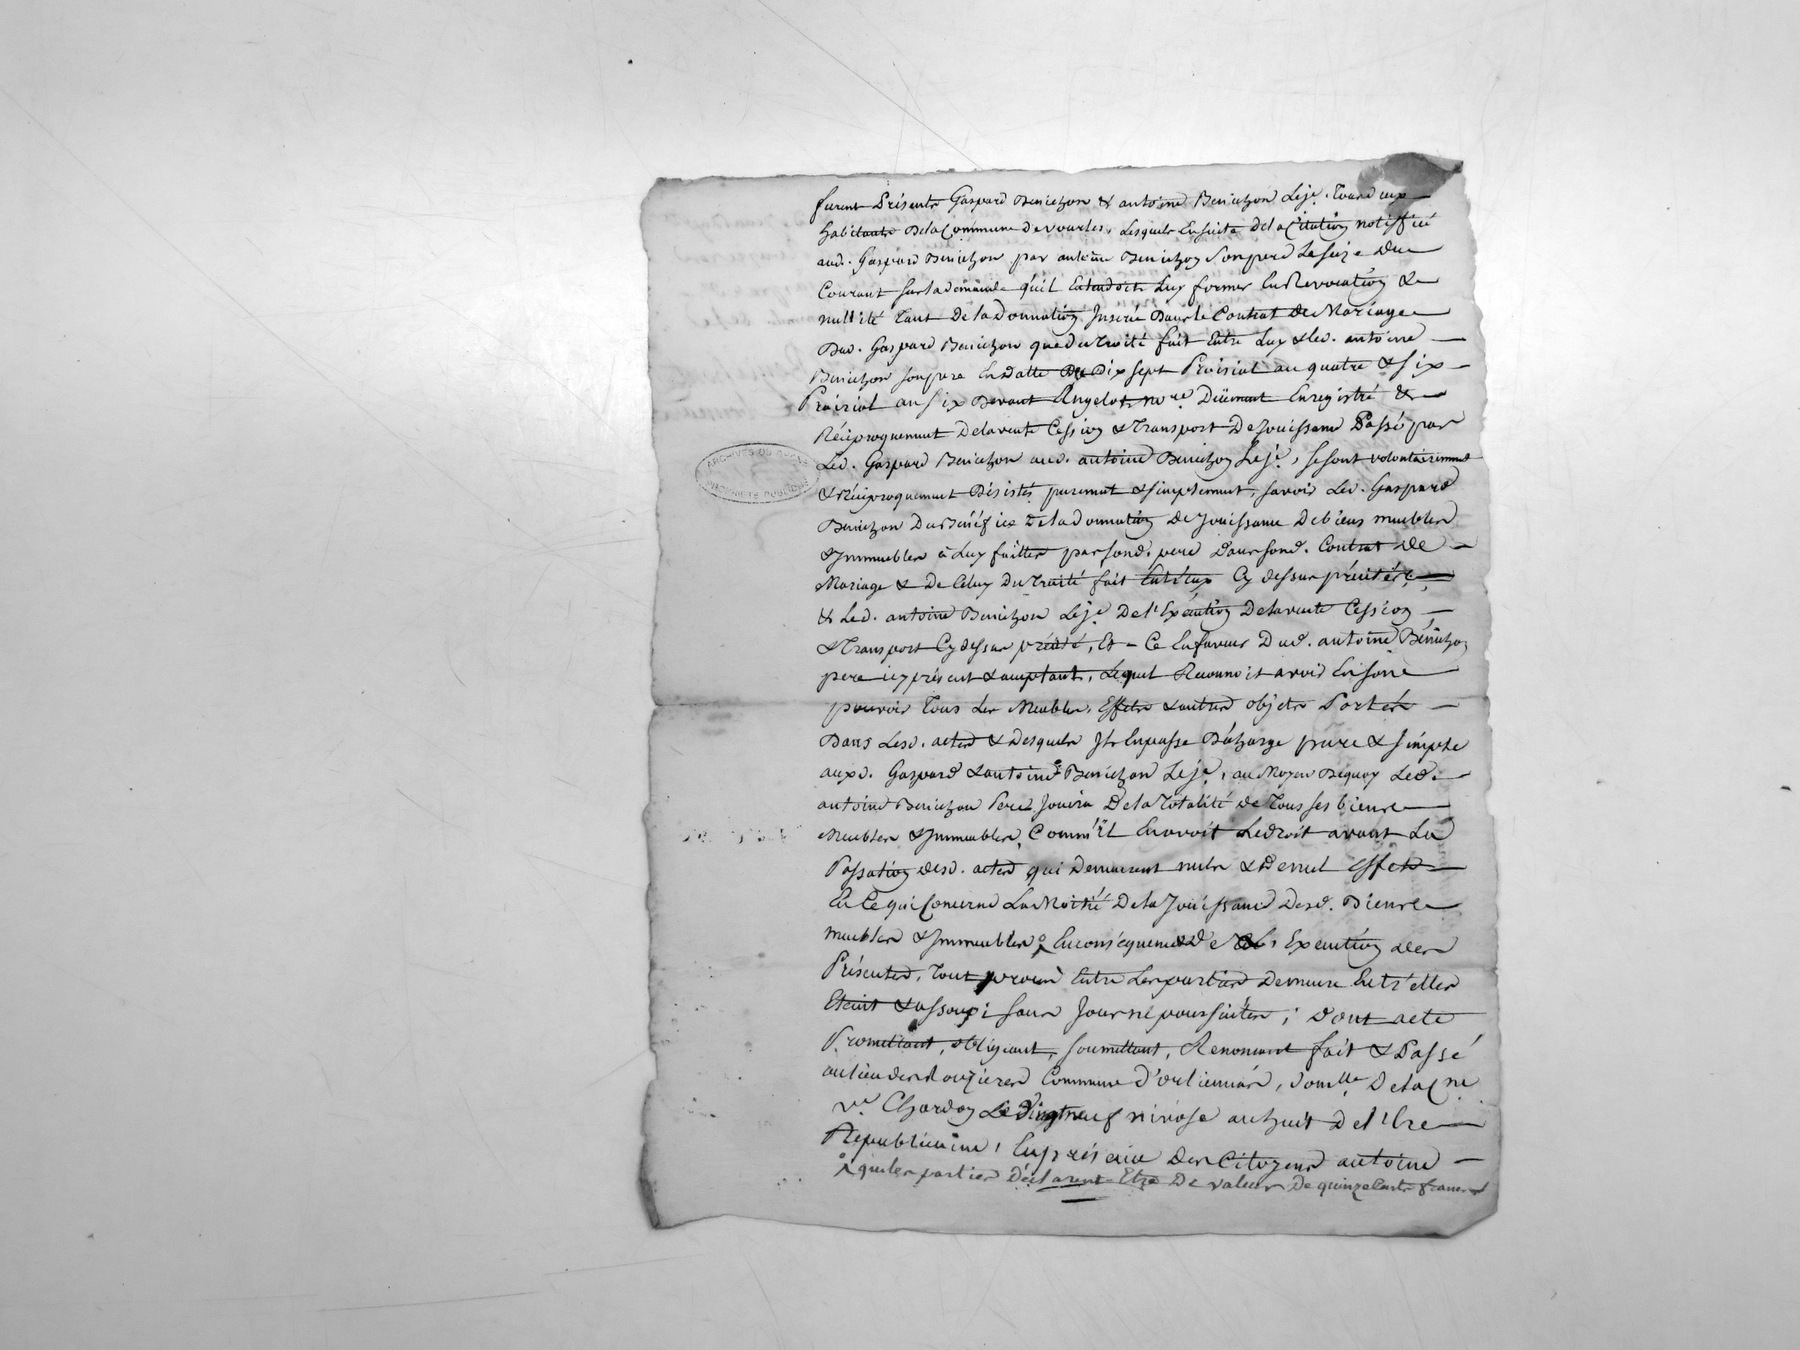 furent Présents Gaspard Benichon & antoine Benichon Leje. Tous deux
habitants Dela Commune de vourles, Lesquels Ensuite dela Citation notiffiée
aud. Gaspard Benichon par antoine Benichon son pere Le seize Du
Courant sur la demande qu'il Entendoit Luy former En Revocation &
nullité Tant De la Donnation Inserée Dans le Contrat De Mariage
Dud. Gaspard Benichon que du Traité fait Entre Luy & led. antoine
Benichon son pere En datte Du Dix sept Prairial au quatre & six
Prairial an six Devant Angelot nore. Dûement Enregistré &
Réciproquement Dela vente Cession & Transport De Jouissance Passé par
Led. Gaspard Benichon aud. antoine Benichon Leje, se sont volontairement
& réciproquement Désistés purement & simplement, savoir Led. Gaspard
Benichon Du Bénéfice De la donnation de Jouissance De biens meubles
& Immeubles à Luy faittes par sond. pere Dans sond. Contrat de
Mariage & De Celuy Du Traité fait Entr'eux Cy dessus précités,
& Led. antoine Benichon Leje De l'Exécution Dela vente Cession
& Transport Cy dessus précité, Et Ce En faveur Dud. antoine Bénichon
pere icy présent & acceptant, Lequel Reconnoit avoir En son
pouvoir Tous Les Meubles, Effets & autres objets Portés
Dans Lesd. actes & Desquels Il En passe Décharge pure & simple
auxd. Gaspard & antoine Benichon Leje, au Moyen Dequoy Led.
antoine Benichon Pere Jouira De la Totalité de Tous ses biens
Meubles & Immeubles, Comm'il En avoit Le droit avant La
Passation desd. actes qui Demeurent nuls & De nul effet
En Ce qui Concerne La Moitié De la Jouissance Desd. Biens
meubles & Immeubles Enconséquence de Execution des
Présentes, Tout procès Entre Les parties Demeure Entr'elles
Eteint & assoupi sans Jour ni poursuittes; Dont acte
Promettant, obligeant, soumettant, Renonçant fait & Passé
au lieu des Commune d'orliennas, Domlle. De la Cne
ve. Chardon Le Vingt neuf nivose an huit De l'Ere
Republicaine, En présence Des Citoyens antoine
que les parties Déclarent Etre De valeur De quinze Cents francs